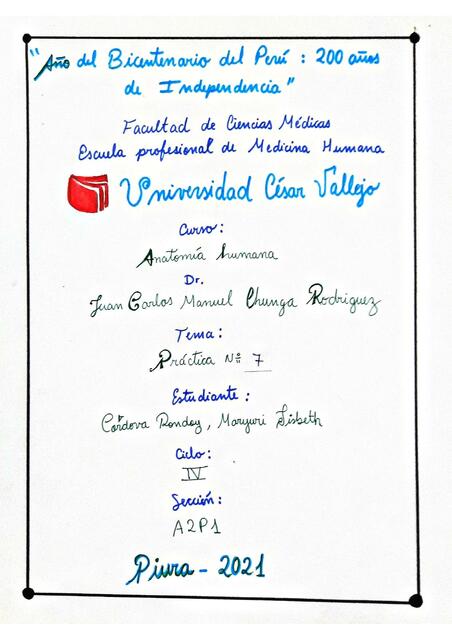 "Año del Bicentenario del Perú : 200 años
de Independencia"
Facultad de Ciencias Médicas
Escuela profesional de Medicina Humana
Universidad César Vallejo
Curso :
Anatomía humana
Dr.
Juan Carlos Manuel Chunga Rodriguez
Tema :
Práctica Nº 7
Estudiante :
Córdova Rondoy, Maryuri Lisbeth
Ciclo :
IV
Sección :
A2P1
Piura - 2021